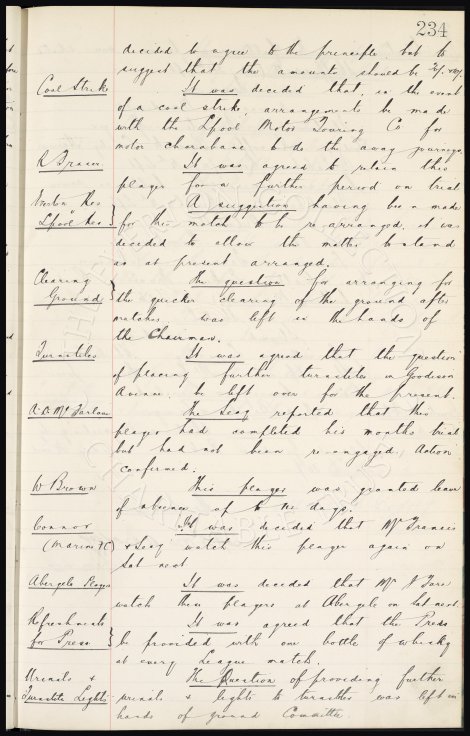 234
decided to agree to the principle but to
suggest that the amounts should be
Coal Strike It was decided that, in the event
of a coal strike, arrangements be made
with the Lpool Motor Touring Co for
motor charabanc to do the away journeys
R Brewer It was agreed to retain this
player for a further period on trial
Everton Res
v
Lpool Res A suggestion having been made
for this match to be re-arranged, it was
decided to allow the matter to stand
as at present arranged.
Clearing
Ground The question for arranging for
the quicker clearing of the ground after
matches was left in the hands of
the Chairman.
Turnstiles It was agreed that the question
of placing further turnstiles in Goodison
Avenue be left over for the present.
A. D. McFarlane The Secy reported that this
player had completed his months trial
but had not been re-engaged, Action
confirmed.
W Brown This player was granted leave
of absence up to days.
Connor
(Marine FC) It was decided that Mr Francis
& Secy watch this player again on
Sat next
Abergele Players It was decided that Mr J Fare
watch these players at Abergele on Sat next.
Refreshments
for Press It was agreed that the Press
be provided with one bottle of whisky
at every League match.
Urinals &
Turnstile Lights The Question of providing further
urinals & lights to turnstiles was left in
hands of ground Committee.